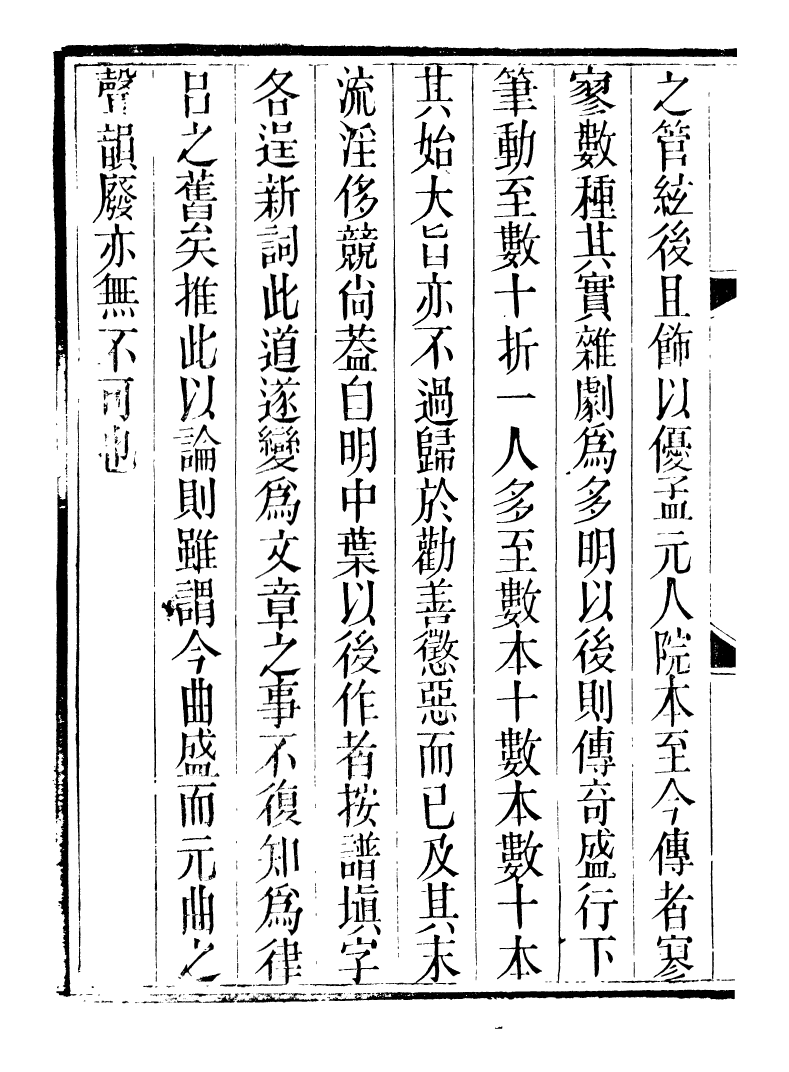 之管絃後且飾以優孟元人院本至今傳者寥
寥數種其實雜劇為多明以後則傳奇盛行下
筆動至數十折一人多至數本十數本數十本
其始大旨亦不過歸於勸善懲惡而已及其末
流淫侈競尙葢自明中葉以後作者按譜塡字
各逞新詞此道遂變為文章之事不復知為律
呂之舊矣推此以論則雖謂今曲盛而元曲之
聲韻廢亦無不可也